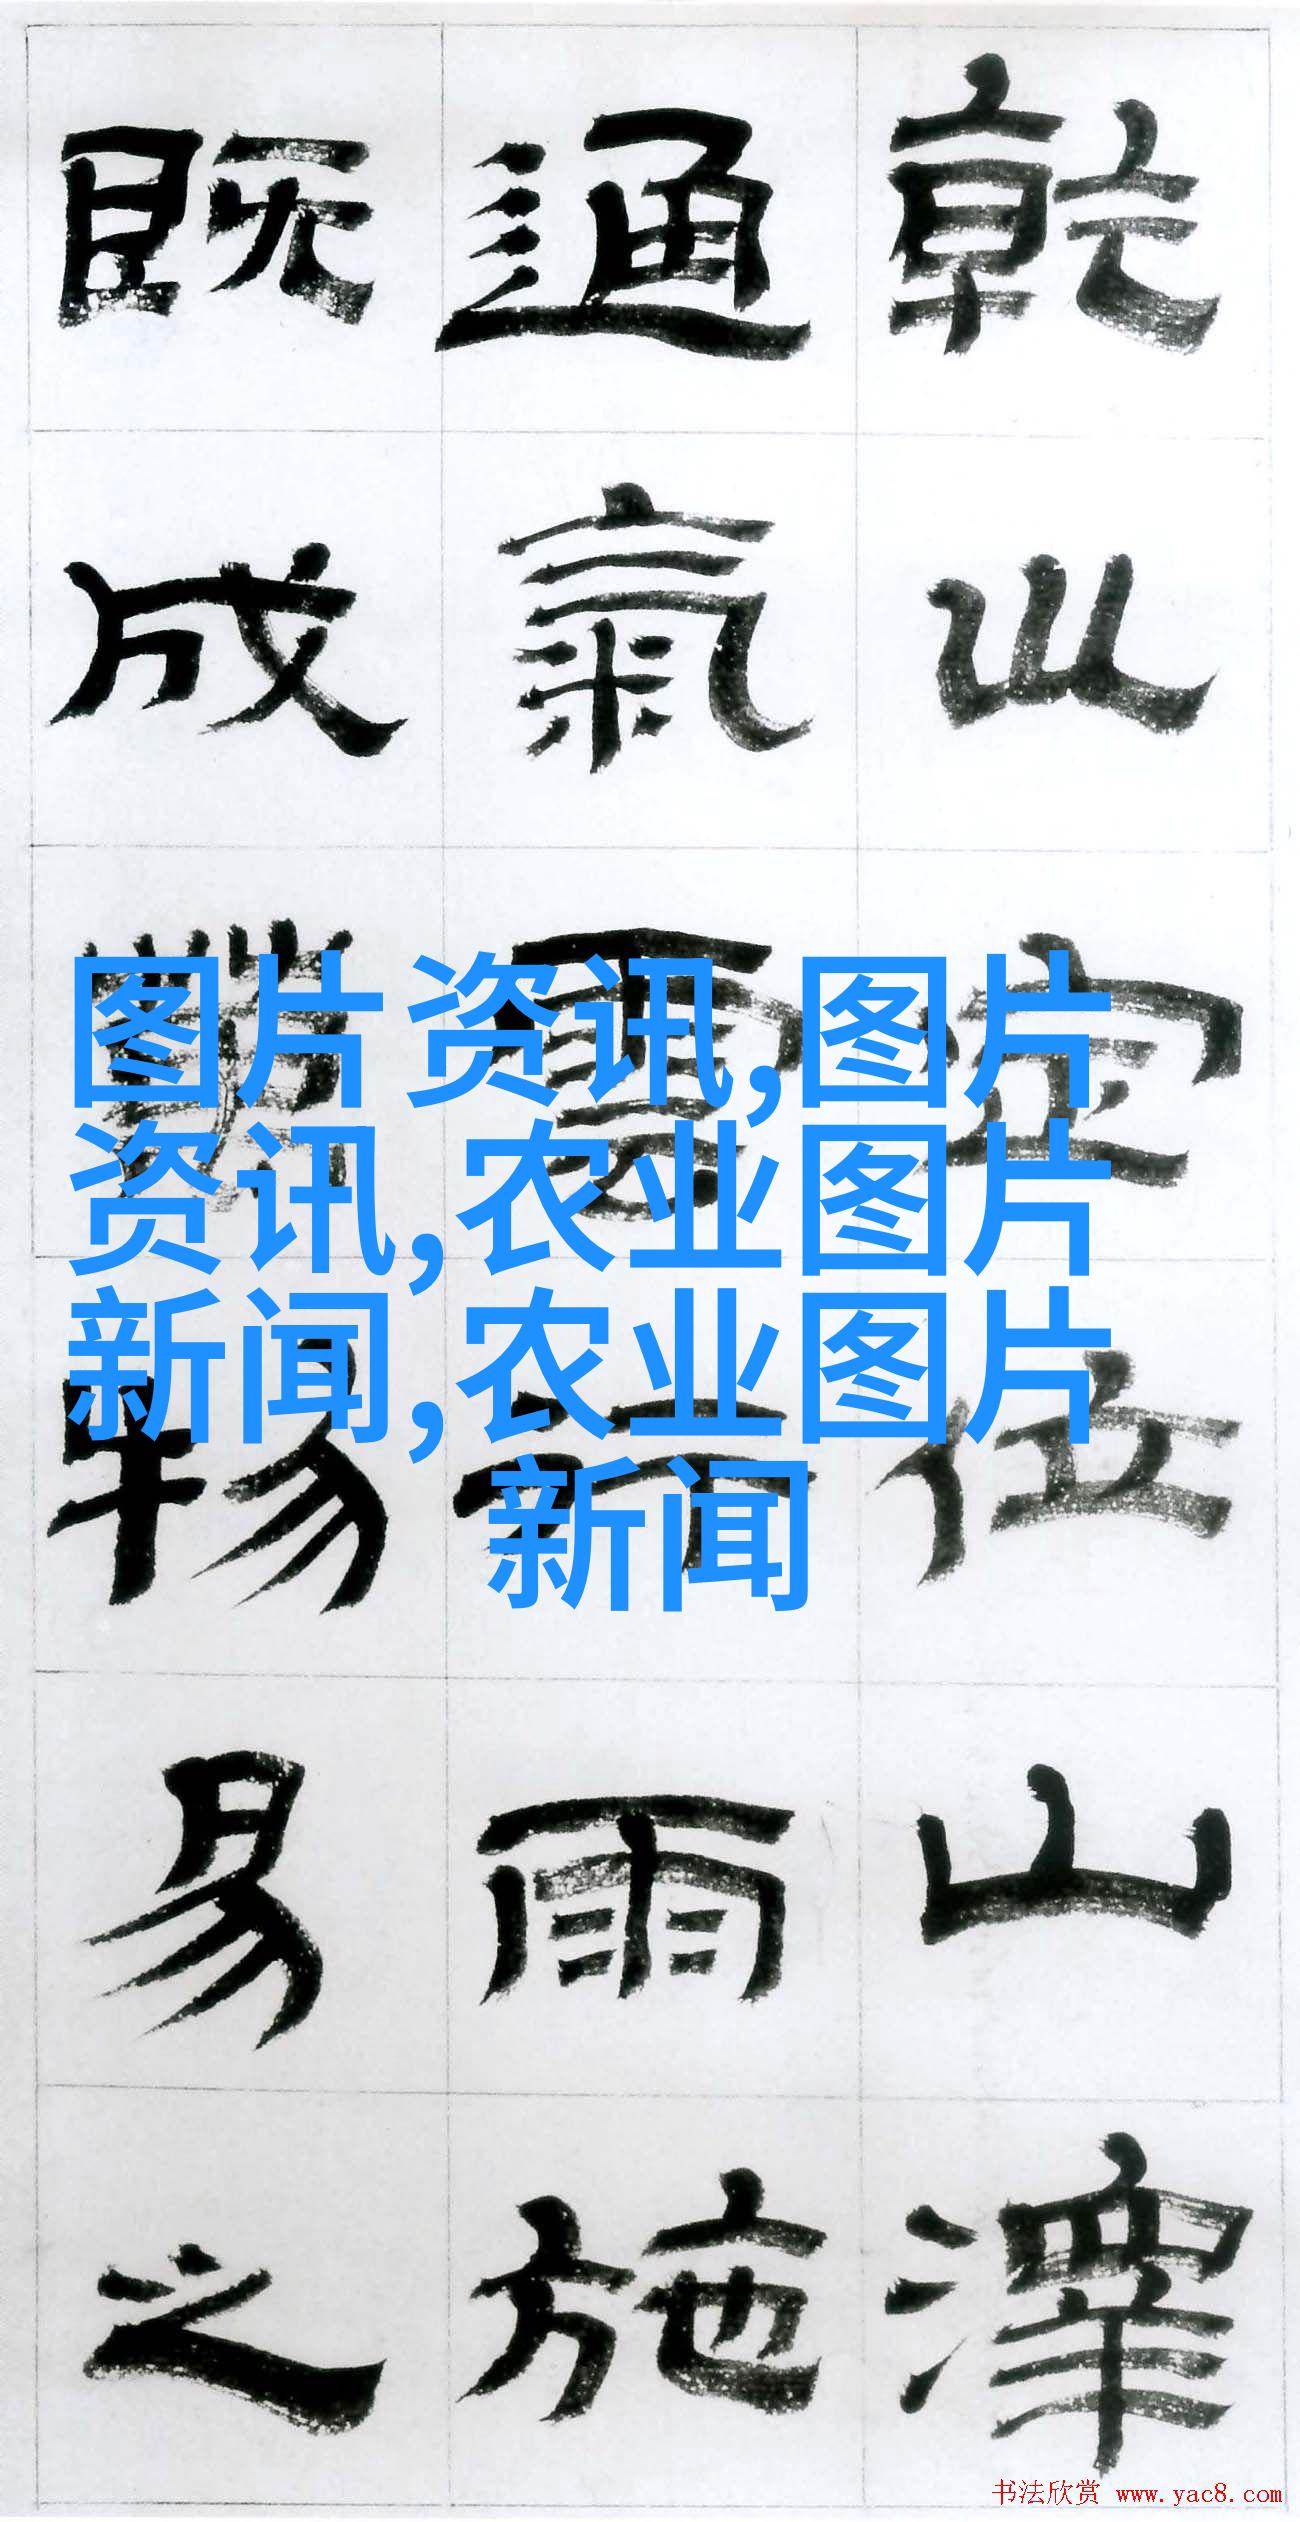 乾巛定位山澤
通氣雲行雨施
既成萬物易之
图片资讯,图片
资讯,农业图片
新闻,农业图片
新闻
书法欣赏 www.yac8.com